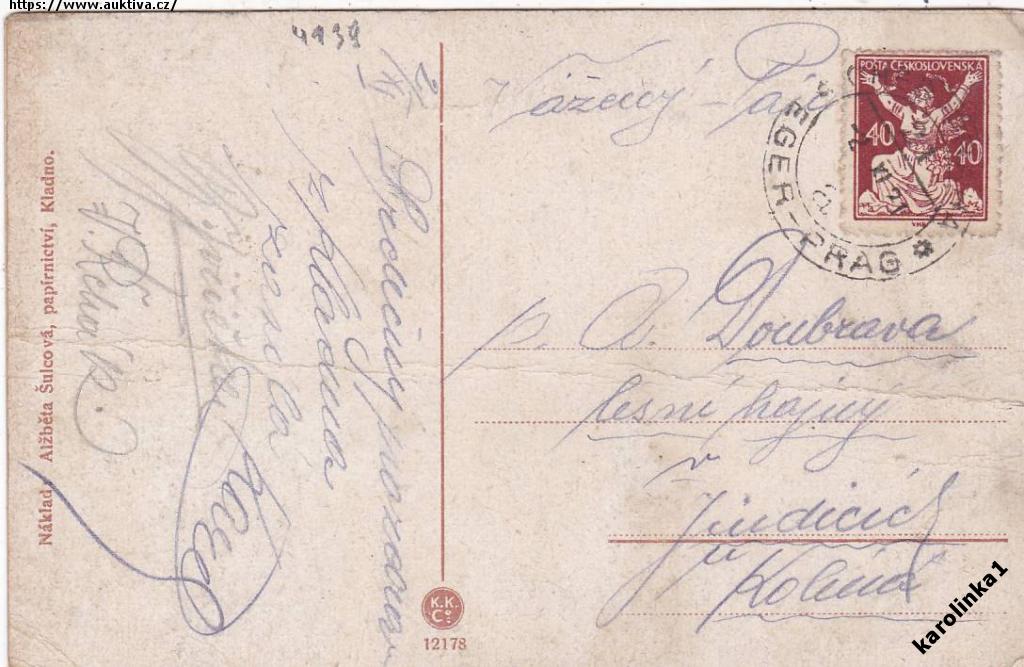 https://www.auktiva.cz/
4139
2/XI
Srdečný pozdrav
z Kladna
zasílá
Karel
Náklad. Alžběta Šulcová, papírnictví, Kladno.
K.K.
Co
12178
Vážený Pán
POŠTA ČESKOSLOVENSKÁ
40 40
EGER-PRAG
p. A. Doubrava
lesní hajný
v
Jindicích
u Kolína
karolinka1